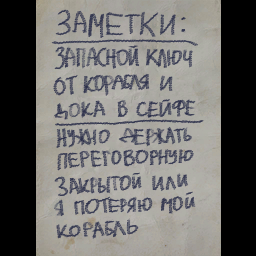 ЗАМЕТКИ:
ЗАПАСНОЙ КЛЮЧ
ОТ КОРАБЛЯ И
ДОКА В СЕЙФЕ
НУЖНО ДЕРЖАТЬ
ПЕРЕГОВОРНУЮ
ЗАКРЫТОЙ ИЛИ
Я ПОТЕРЯЮ МОЙ
КОРАБЛЬ